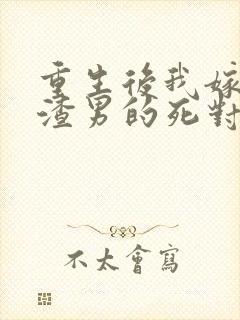 重生後我嫁
渣男的死對
不太會寫